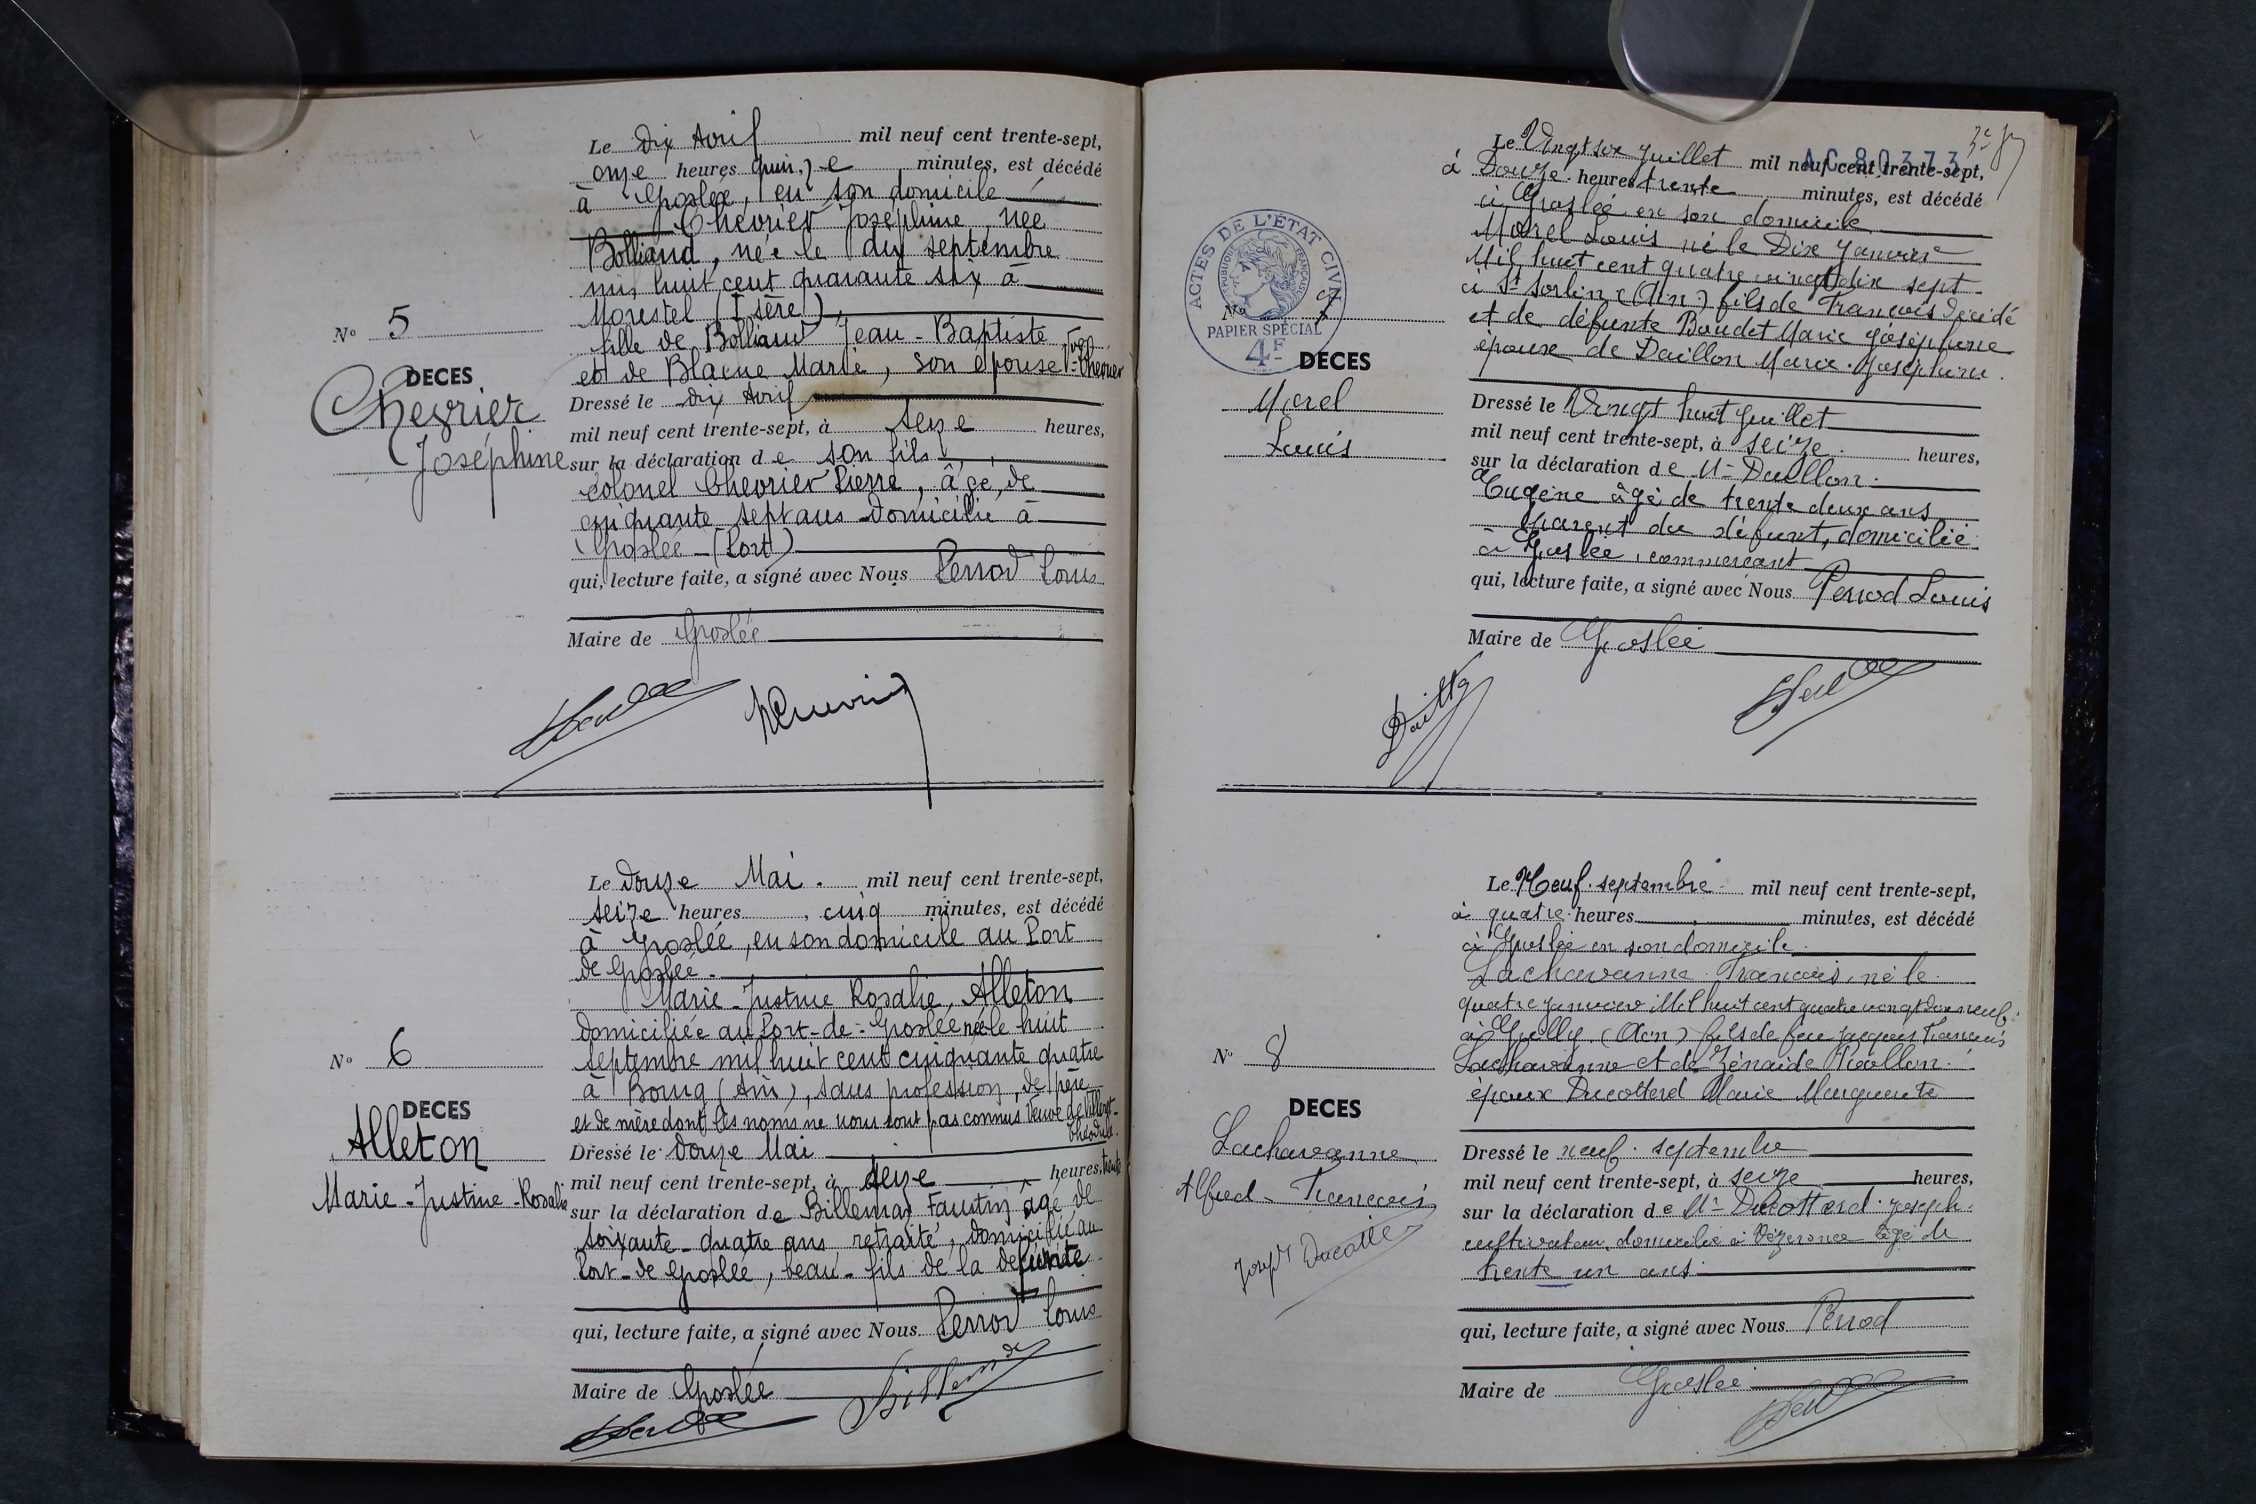 Le Dix Avril mil neuf cent trente-sept,
onze heures quinze minutes, est décédé
à Groslée, en son domicile
Chevrier Joséphine née
Bolliand, née le dix septembre
mil huit cent quarante six à
Morestel (Isère),
fille de Bolliand Jean-Baptiste
et de Blache Marie, son épouse Vve Chevrier
Nº 5
DECES
Chevrier
Joséphine
Dressé le dix Avril
mil neuf cent trente-sept, à seize heures,
sur la déclaration de son fils,
colonel Chevrier Pierre, âgé, de
cinquante sept ans domicilié à
Groslée - (Port)
qui, lecture faite, a signé avec Nous Perrod Louis
Maire de Groslée
Le douze Mai. mil neuf cent trente-sept,
seize heures, cinq minutes, est décédé
à Groslée, en son domicile au Port
de Groslée.
Marie-Justine Rosalie, Alleton
domiciliée au Port-de-Groslée née le huit
septembre mil huit cent cinquante quatre
à Bourg (Ain), sans profession, de père
et de mère dont les noms ne nous sont pas connus veuve de
Nº 6
DECES
Alleton
Marie-Justine-Rosalie
Dressé le douze Mai
mil neuf cent trente-sept, à seize heures, trente
sur la déclaration de Billemaz Faustin âgé de
soixante-quatre ans, retraité, domicilié au
Port-de Groslée, beau-fils de la défunte
qui, lecture faite, a signé avec Nous Perrod Louis
Maire de Groslée
AC 80373
Le Vingt six juillet mil neuf cent trente-sept,
à Douze heures trente minutes, est décédé
à Groslée en son domicile
Morel Louis né le Dix janvier
Mil huit cent quatre vingt dix sept
à St Sorlin (Ain) fils de François décédé
et de défunte Baudet Marie Joséphine
époux de Daillon Marie. Joséphine.
ACTES DE L'ÉTAT CIVIL
RÉPUBLIQUE FRANÇAISE
PAPIER SPÉCIAL
4F
Nº 7
DECES
Morel
Louis
Dressé le Vingt huit juillet
mil neuf cent trente-sept, à seize. heures,
sur la déclaration de Mr Daillon.
Eugène âgé de trente deux ans
parent du défunt, domicilié
à Groslée, commerçant
qui, lecture faite, a signé avec Nous Perrod Louis
Maire de Groslée
Le Neuf. septembre mil neuf cent trente-sept,
à quatre heures minutes, est décédé
à Groslée en son domicile.
Lachavanne François, né le
quatre janvier Mil huit cent quatre vingt dix neuf
(Ain) fils de feu Jacques François
Lachavanne et de Zénaïde
époux Ducotterd Marie Marguerite
Nº 8
DECES
Lachavanne
Alfred - François
Joseph
Dressé le neuf. septembre
mil neuf cent trente-sept, à seize heures,
sur la déclaration de Mr Ducotterd. joseph.
cultivateur, domicilié à Vézeronce âgé de
trente un ans.
qui, lecture faite, a signé avec Nous Perrod
Maire de Groslée